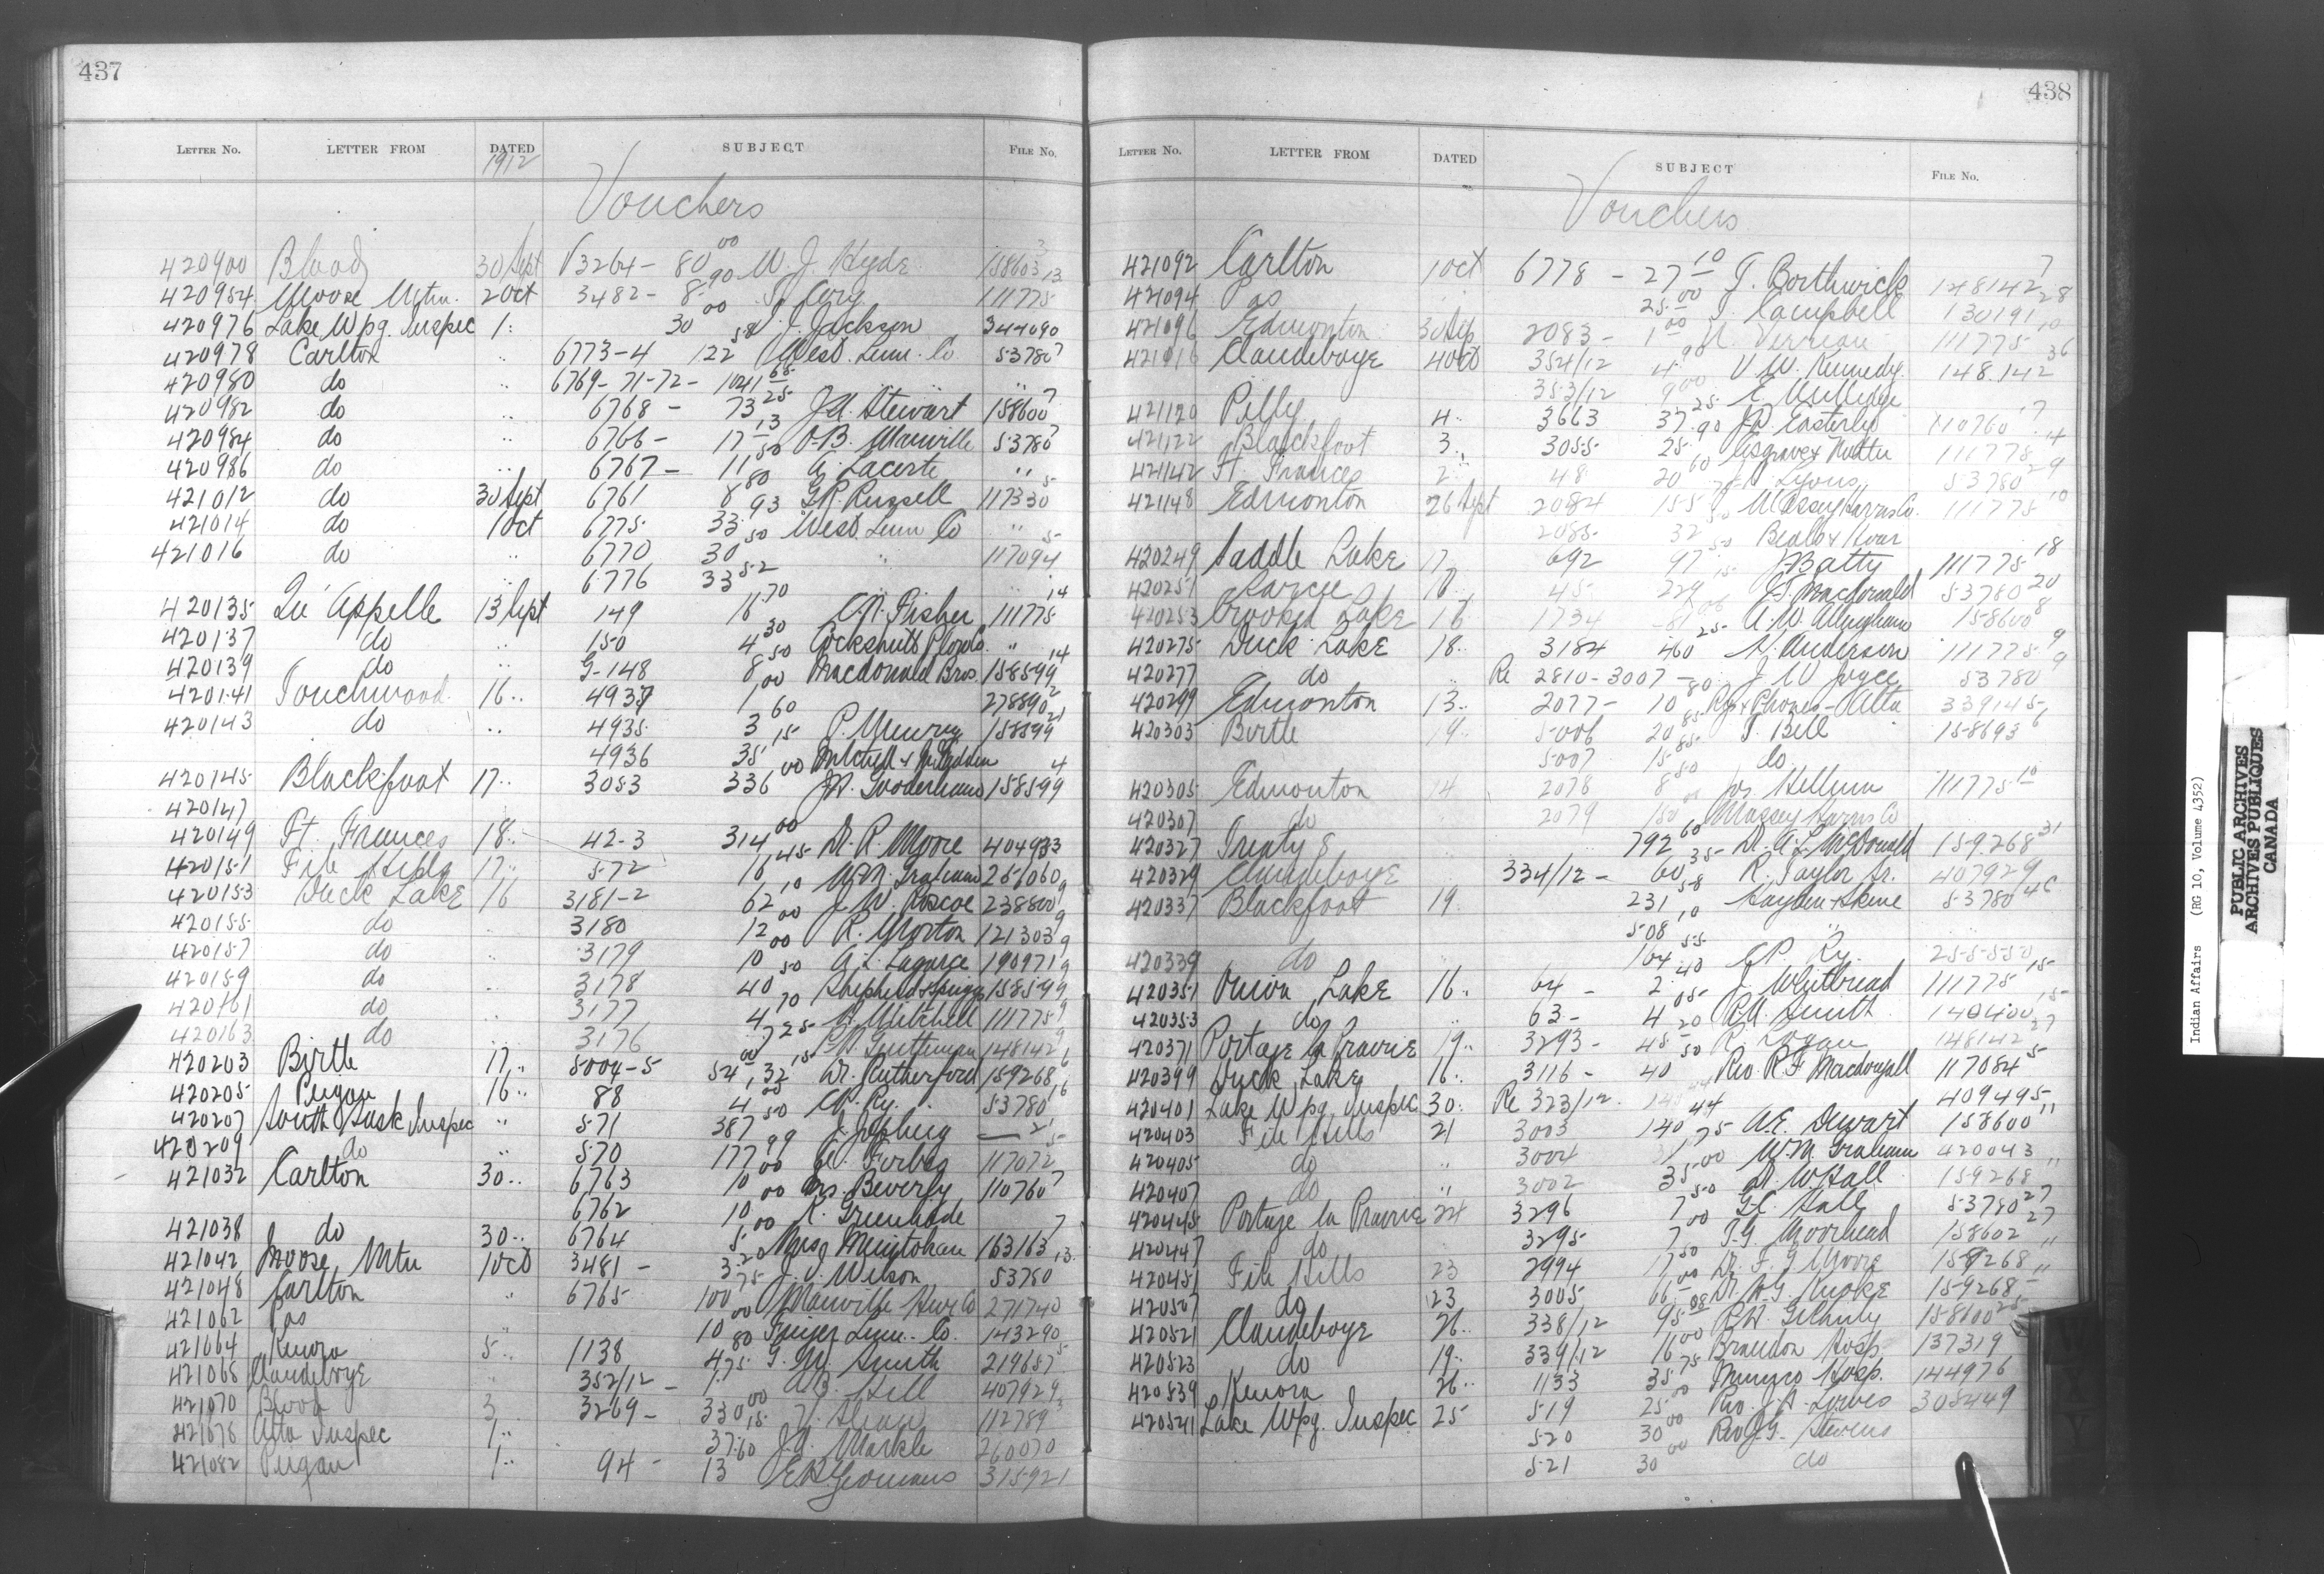 437
LETTER NO. LETTER FROM DATED SUBJECT FILE NO.
1912
Vouchers
420900 Blood 30 Sept V3264 - 80 00 W. J. Hyde 158603 3
420954 Moose Mtn. 2 Oct 3482 - 8 90 S. Cory 111775 13
420976 Lake Wpg. Inspec 1 30 00 J. Jackson 344090
420978 Carlton " 6773-4 122 58 West. Lum. Co 53780 7
420980 do " 6769-71-72 - 1041 65 " "
420982 do " 6768 - 73 25 J.A. Stewart 158600 7
420984 do " 6766 - 17 13 O.B. Manville 53780 7
420986 do " 6767 - 11 50 A. Lacerte "
421012 do 30 Sept 6761 8 80 G.R. Russell 117330 5
421014 do 1 Oct 6775 33 93 West. Lum Co "
421016 do " 6770 30 50 " 117094 5
6776 33 52
420135 Qu'Appelle 13 Sept 149 16 70 C.N. Fisher 111775 14
420137 do " 150 4 30 Cockshutt Plow Co. "
420139 do " G-148 8 50 Macdonald Bros. 158599 14
420141 Touchwood 16 " 4937 1 00 278890 2
420143 do " 4935 3 60 P. Meurey 158599 21
4936 35 15
420145 Blackfoot 17 " 3053 336 00 J.H. Gooderham 158599 4
420147
420149 Ft. Frances 18 " 42-3 314 00 Dr. R. Moore 404933
420151 File Hills 17 " 572 16 45 W.M. Graham 251060
420153 Duck Lake 16 3181-2 62 10 J.W. Roscoe 238800 9
420155 do " 3180 12 00 R. Morton 121303 9
420157 do " 3179 10 00 A.L. Lagarce 190971 9
420159 do " 3178 40 50 158599 9
420161 do " 3177 4 70 H. Mitchell 111775 9
420163 do " 3176 7 25 148142 9
420203 Birtle 17 " 5004-5 54 00, 32 15 Dr. Rutherford 159268 6
420205 Peigan 16 " 88 4 25 C.P. Ry. 53780 16
420207 South Sask Inspec " 571 387 50
420209 do " 570 177 99 Forbes 117072 5
421032 Carlton 30 " 6763 10 00 Mrs. Beverly 110760 7
6762 10 00 K. Greenhade
421038 do 30 " 6764 5 00 Mrs Meuitokan 163163 7
421042 Moose Mtn 1 Oct 3481 - 3 20 J.J. Wilson 53780 13
421048 Carlton " 6765 100 75 Manville Hwr Co 271740
421062 Pas " 10 00 Finger Lum. Co. 143290
421064 Kenora 5 " 1138 4 80 G.M. Smith 219657 5
421068 Clandeboye " 352/12 - 1 75 A.B. Hill 407929
421070 Blood 3 3269 - 330 00 112789 3
421078 Alta Inspec 1 " 37 15 J.A. Markle 260070
421082 Peigan 1 " 94 - 13 60 E.H. Yeomans 315921
438
LETTER NO. LETTER FROM DATED SUBJECT FILE NO.
Vouchers
421092 Carlton 1 Oct 6778 - 27 10 J. Borthwick 148142 7
421094 Pas " 25 00 J. Campbell 130191 28
421096 Edmonton 30 Sep 2083 - 1 00 111775 10
421116 Clandeboye 4 Oct 354/12 4 90 V.W. Kennedy 148142 36
353/12 9 00
421120 Pelly 4 " 3663 37 25 J.D. Easterly 110760 17
421122 Blackfoot 3 " 3055 25 90 111775 14
421142 Ft. Frances 2 " 48 20 60 Lyons 53780 29
421148 Edmonton 26 Sept 2084 155 Massey Harris Co. 111775 10
2085 32 50 Bealby + Hoar
420249 Saddle Lake 17 " 692 97 50 J. Batty 111775 18
420251 Sarcee 18 45 229 15 J. Macdonald 53780 20
420253 Crooked Lake 16 1734 81 06 A.W. Allingham 158600 8
420275 Duck Lake 18 " 3184 460 25 H. Anderson 111775 9
420277 do " Re 2810-3007 - J.W. Joyce 53780 9
420299 Edmonton 13 " 2077 - 10 80 Ry + Phones - Alta 339145
420303 Birtle 19 " 5006 20 85 J. Bell 158693 6
5007 15 85 do
420305 Edmonton 14 2078 8 50 Jos. Hellum 111775 10
420307 do " 2079 150 00 Massey Harris Co
420327 Treaty 8 " 792 60 Dr. A.L. McDonald 159268 31
420329 Clandeboye " 334/12 - 60 35 R. Taylor Sr. 407929
420337 Blackfoot 19 231 58 Hayden + Skene 53780 46
508 10 " "
420339 do " 164 55 C.P. Ry. 255550
420351 Onion Lake 16 " 64 - 2 40 J. Whitbread 111775 15
420353 do " 63 - 4 05 R.A. Smith 140400 15
420371 Portage la Prairie 19 " 3293 - 45 20 R. Logan 148142 27
420399 Duck Lake 16 " 3116 - 40 50 Rev. R.F. Macdougall 117084 5
420401 Lake Wpg. Inspec 30 " Re 323/12 409495
420403 File Hills 21 3003 140 44 A.E. Dewart 158600 11
420405 do " 3004 31 75 W.M. Graham 420043
420407 do " 3002 35 00 Dr. W Hall 159268 11
420445 Portage la Prairie 24 3296 7 50 G.C. Hall 53780 27
420447 do " 3295 7 00 T.G. Moorhead 158602 27
420451 File Hills 23 2994 17 50 Dr. F. G. Moore 159268 11
420507 do 23 3005 66 00 159268
420521 Clandeboye 26 " 338/12 95 08 R.W. Gilhuly 158600 25
420523 do 19 " 339/12 16 00 Brandon Hosp. 137319
420539 Kenora 26 " 1133 35 75 Munro Hosp. 144976
420541 Lake Wpg. Inspec 25 519 25 00 Rev. J.A. 305449
520 30 00 Rev J.G. Stevens
521 30 00 do
Indian Affairs (RG 10, Volume 4352)
PUBLIC ARCHIVES
ARCHIVES PUBLIQUES
CANADA